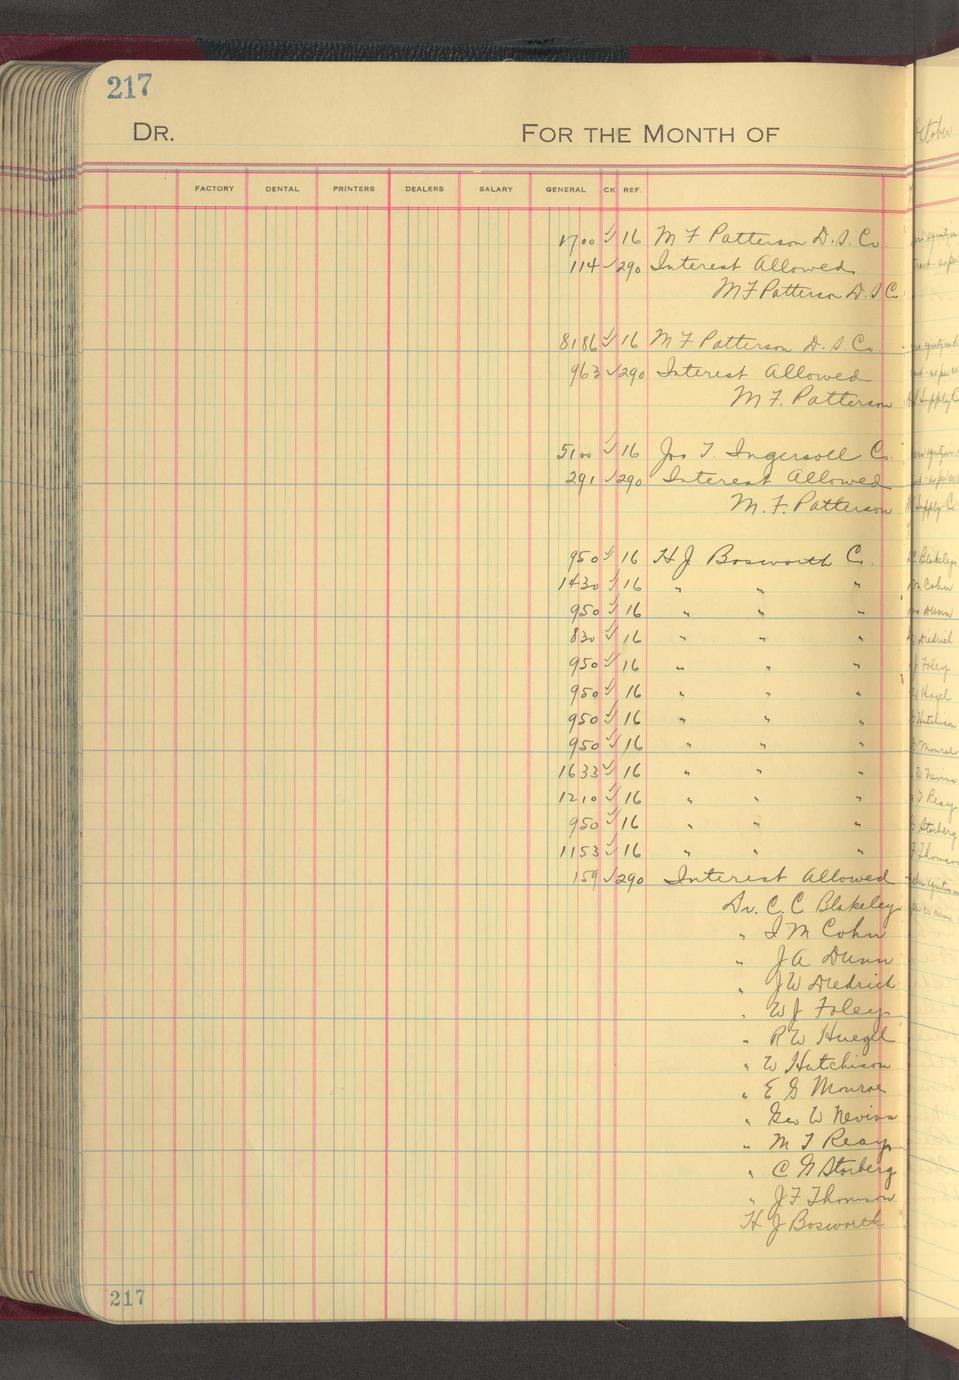 217
DR. FOR THE MONTH OF
October
FACTORY DENTAL PRINTERS DEALERS SALARY GENERAL CK REF.
1700 ✓ 16 M F Patterson D. S. Co
114 ✓ 290 Interest Allowed
M F Patterson D S C
8186 ✓ 16 M F Patterson D. S. Co
963 ✓ 290 Interest Allowed
M. F. Patterson
Supply C
5100 ✓ 16 Jos T. Ingersoll Co.
291 ✓ 290 Interest Allowed
M. F. Patterson
Supply Co
950 ✓ 16 H J Bosworth Co. C Blakeley
1430 ✓ 16 " " " M Cohn
950 ✓ 16 " " " Dunn
830 ✓ 16 " " " Diedrich
950 ✓ 16 " " " J Foley
950 ✓ 16 " " " Hugel
950 ✓ 16 " " " Hutchison
950 ✓ 16 " " " Monroe
1633 ✓ 16 " " " W Nevins
1210 ✓ 16 " " " T Reay
950 ✓ 16 " " " Storberg
1153 ✓ 16 " " " F Thomson
159 ✓ 290 Interest Allowed
Dr. C. C Blakeley
" I M Cohn
" J A Dunn
" J W Diedrich
" W J Foley
" R W Huegel
" W Hutchison
" E G Monroe
" Geo W Nevins
" M T Reay
" C G Storberg
" J F Thomson
H J Bosworth
217